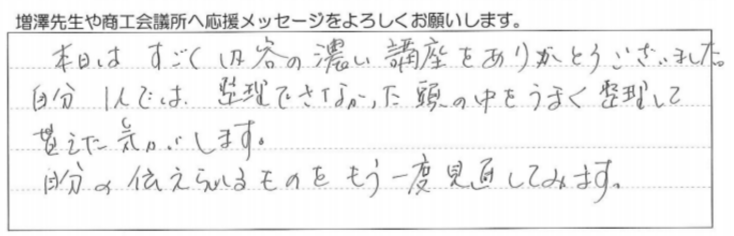 増澤先生や商工会議所へ応援メッセージをよろしくお願いします。
本日は すごく内容の濃い講座をありがとうございました。
自分1人では、整理できなかった頭の中をうまく整理して
貰えた気がします。
自分の伝えられるものをもう一度見直してみます。